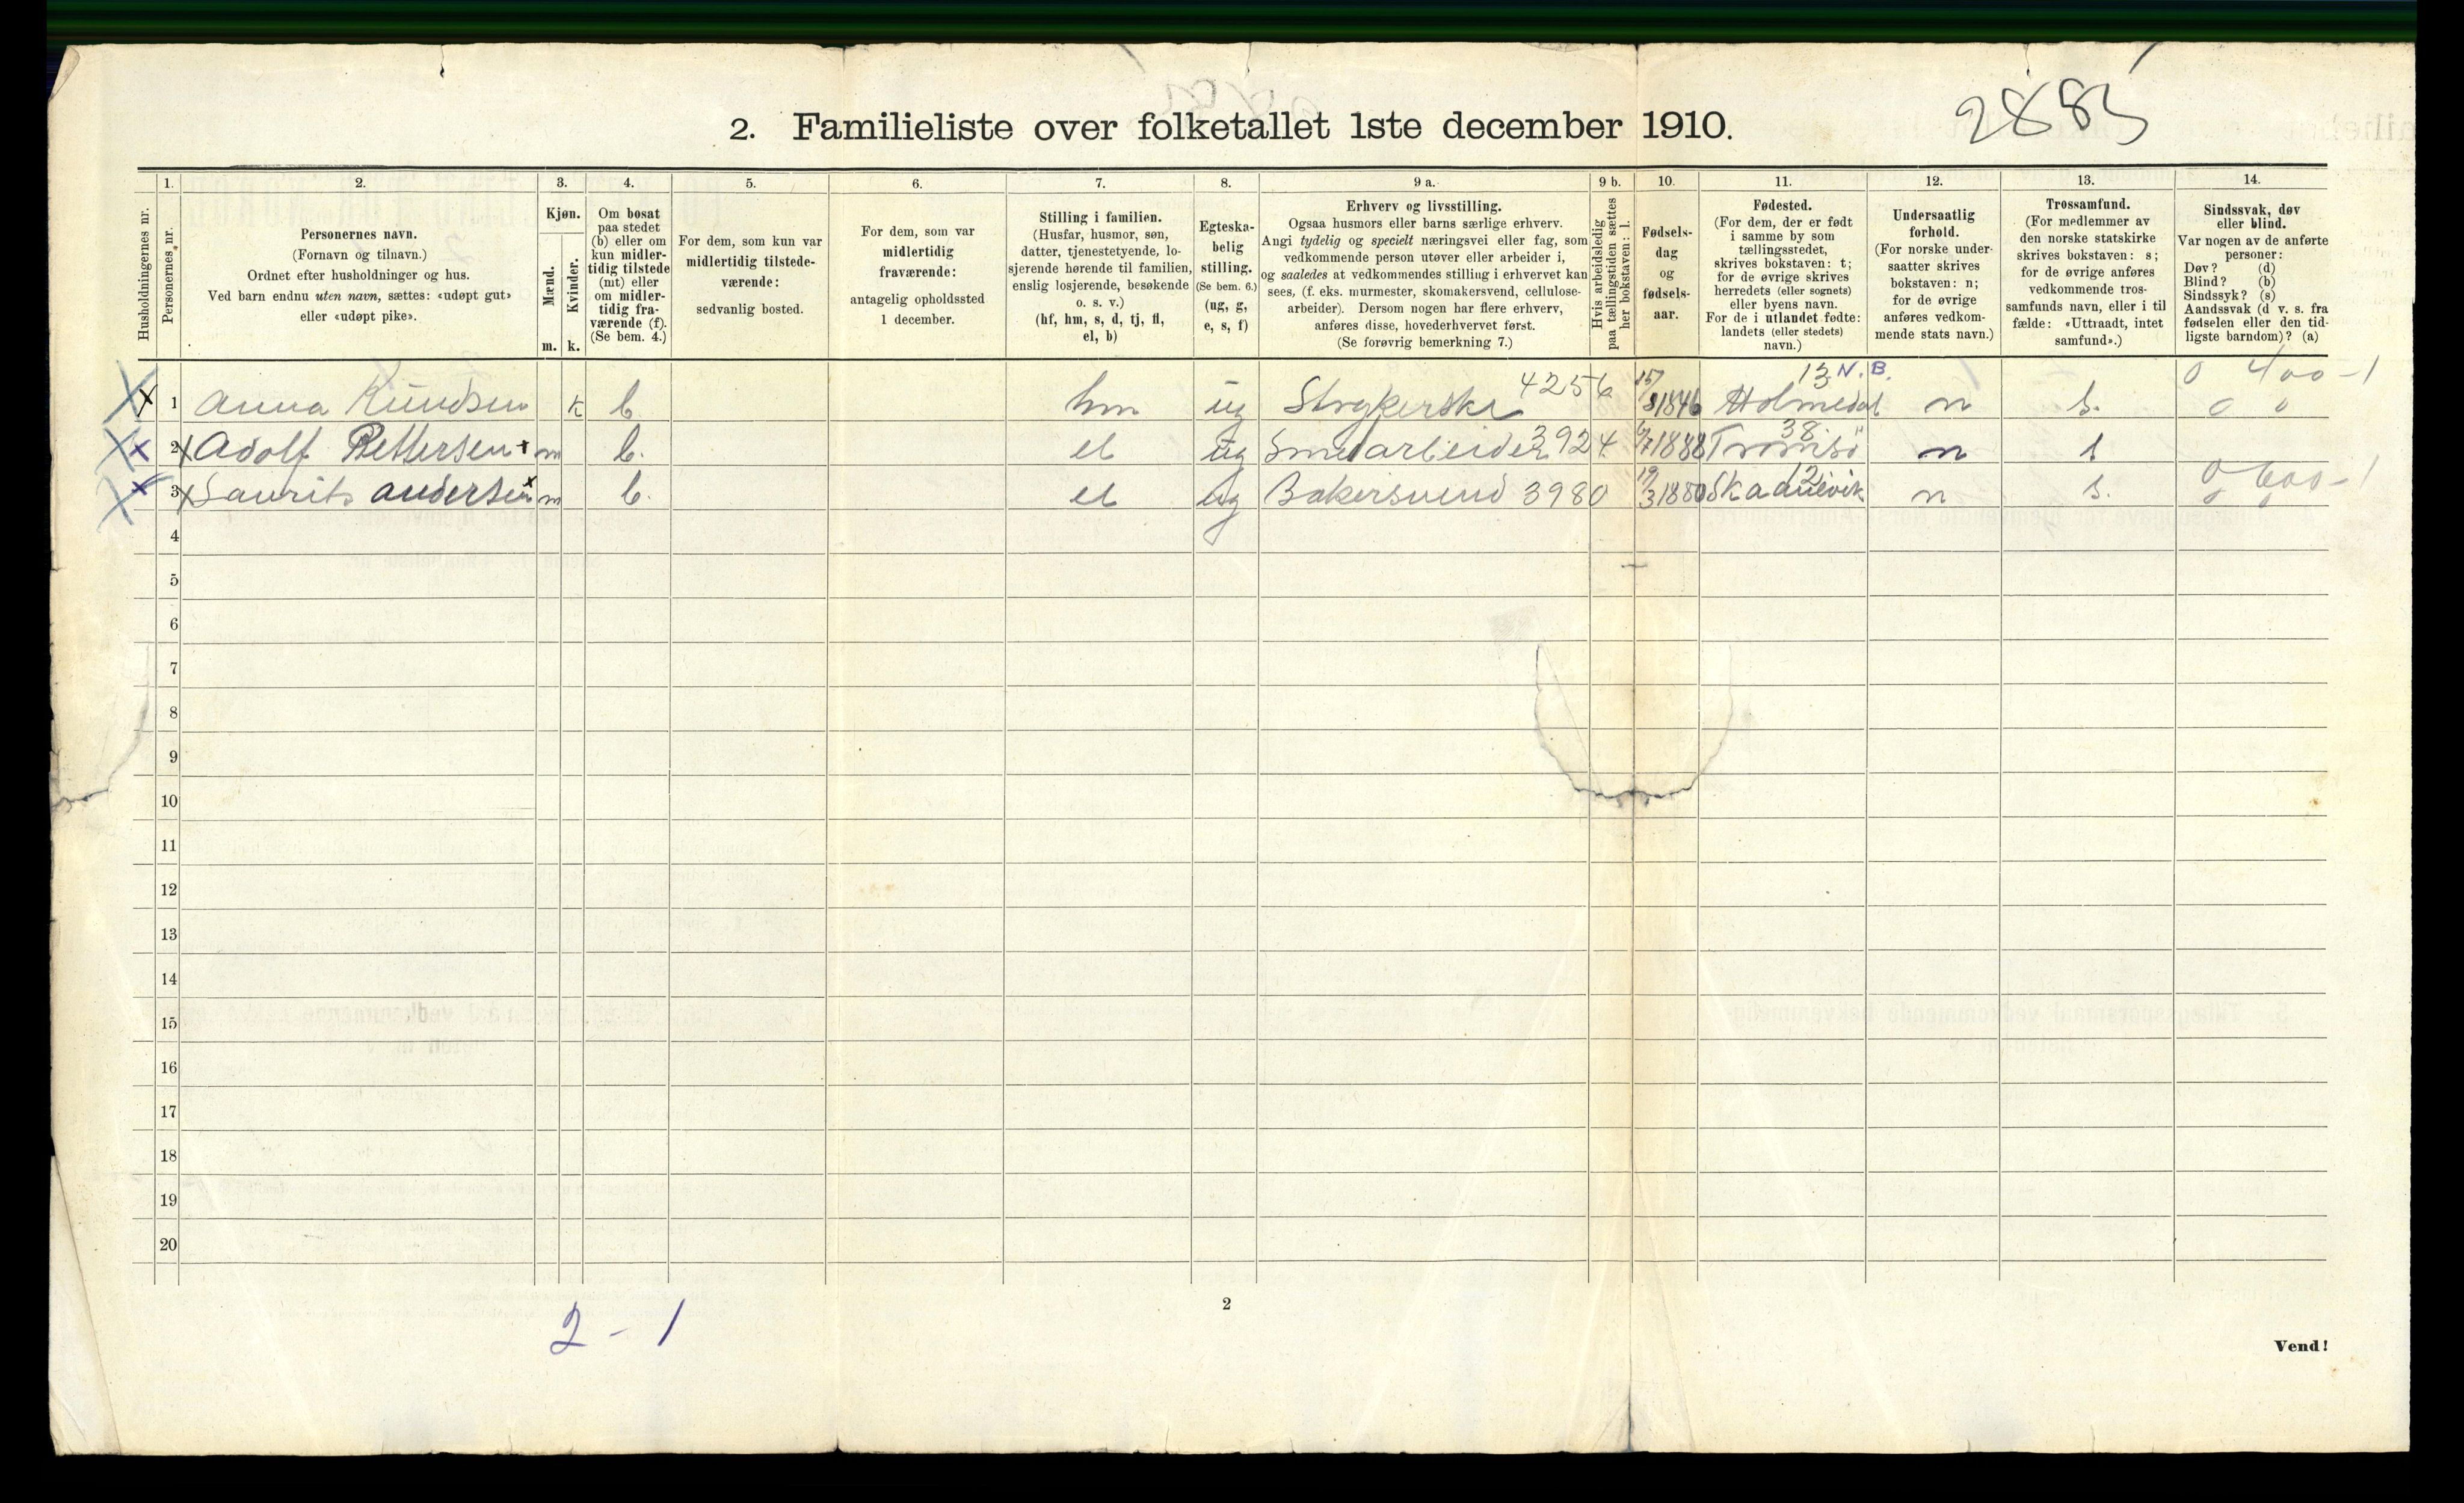 2. Familieliste over folketallet 1ste december 1910.
2883
1. 2. 3. 4. 5. 6. 7. 8. 9 a. 9 b. 10. 11. 12. 13. 14.
Husholdningernes nr.
Personernes nr.
Personernes navn.
(Fornavn og tilnavn.)
Ordnet efter husholdninger og hus.
Ved barn endnu uten navn, sættes: «udøpt gut»
eller «udøpt pike».
Kjøn.
Mænd.
m.
Kvinder.
k.
Om bosat
paa stedet
(b) eller om
kun midler-
tidig tilstede
(mt) eller
om midler-
tidig fra-
værende (f).
(Se bem. 4.)
For dem, som kun var
midlertidig tilstede-
værende:
sedvanlig bosted.
For dem, som var
midlertidig
fraværende:
antagelig opholdssted
1 december.
Stilling i familien.
(Husfar, husmor, søn,
datter, tjenestetyende, lo-
sjerende hørende til familien,
enslig losjerende, besøkende
o. s. v.)
(hf, hm, s, d, tj, fl,
el, b)
Egteska-
belig
stilling.
(Se bem. 6.)
(ug, g,
e, s, f)
Erhverv og livsstilling.
Ogsaa husmors eller barns særlige erhverv.
Angi tydelig og specielt næringsvei eller fag, som
vedkommende person utøver eller arbeider i,
og saaledes at vedkommendes stilling i erhvervet kan
sees, (f. eks. murmester, skomakersvend, cellulose-
arbeider). Dersom nogen har flere erhverv,
anføres disse, hovederhvervet først.
(Se forøvrig bemerkning 7.)
Hvis arbeidsledig
paa tællingstiden sættes
her bokstaven: l.
Fødsels-
dag
og
fødsels-
aar.
Fødested.
(For dem, der er født
i samme by som
tællingsstedet,
skrives bokstaven: t;
for de øvrige skrives
herredets (eller sognets)
eller byens navn.
For de i utlandet fødte:
landets (eller stedets)
navn.)
Undersaatlig
forhold.
(For norske under-
saatter skrives
bokstaven: n;
for de øvrige
anføres vedkom-
mende stats navn.)
Trossamfund.
(For medlemmer av
den norske statskirke
skrives bokstaven: s;
for de øvrige anføres
vedkommende tros-
samfunds navn, eller i til
fælde: «Uttraadt, intet
samfund».)
Sindssvak, døv
eller blind.
Var nogen av de anførte
personer:
Døv? (d)
Blind? (b)
Sindssyk? (s)
Aandssvak (d v. s. fra
fødselen eller den tid-
ligste barndom)? (a)
4256 13 N. B. 0 400-1
1 Anna Knudsen k b hm ug Strykerske 15/8 1846 Holmedal n s. 0 0
38
2 Adolf Pettersen m b. el ug Smedarbeider 3924 6/7 1888 Tromsö n s
12 0 600-1
3 Laurits Andersen m b. el ug Bakersvend 3980 19/3 1880 Skaanevik n s. 0 0
4
5
6
7
8
9
10
11
12
13
14
15
16
17
18
19
20
2 - 1
2
Vend!